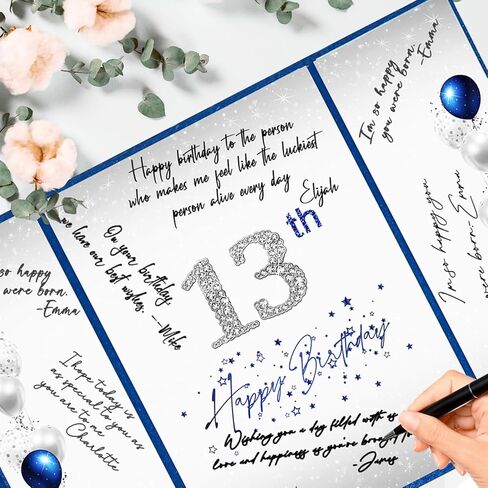 Happy birthday to the person
who makes me feel like the luckiest
person alive every day
Elijah
On your birthday,
we have our best wishes.
-Mike
13th
Happy Birthday
Wishing you a day filled with as
love and happiness as you've brought to
-James
so happy
were born.
-Emma
I hope today is
as special to you as
you are to me
Charlotte
I'm so happy
you were born.
-Emma
I'm so happy you
were born.-Emma